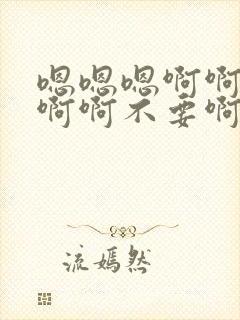 嗯嗯嗯啊啊
啊啊不要啊
流嫣然